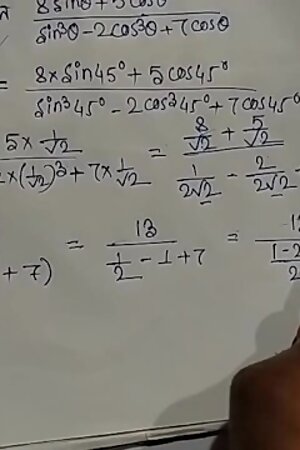 8sinθ + 5cosθ
sin³θ - 2cos³θ + 7cosθ
= 8×sin45° + 5cos45°
sin³45° - 2cos³45° + 7cos45°
5× 1/√2 = 8/√2 + 5/√2
×(1/√2)³ + 7× 1/√2 1/2√2 - 2/2√2
+ 7) = 13 / (1/2 - 1 + 7) =
1-2
2